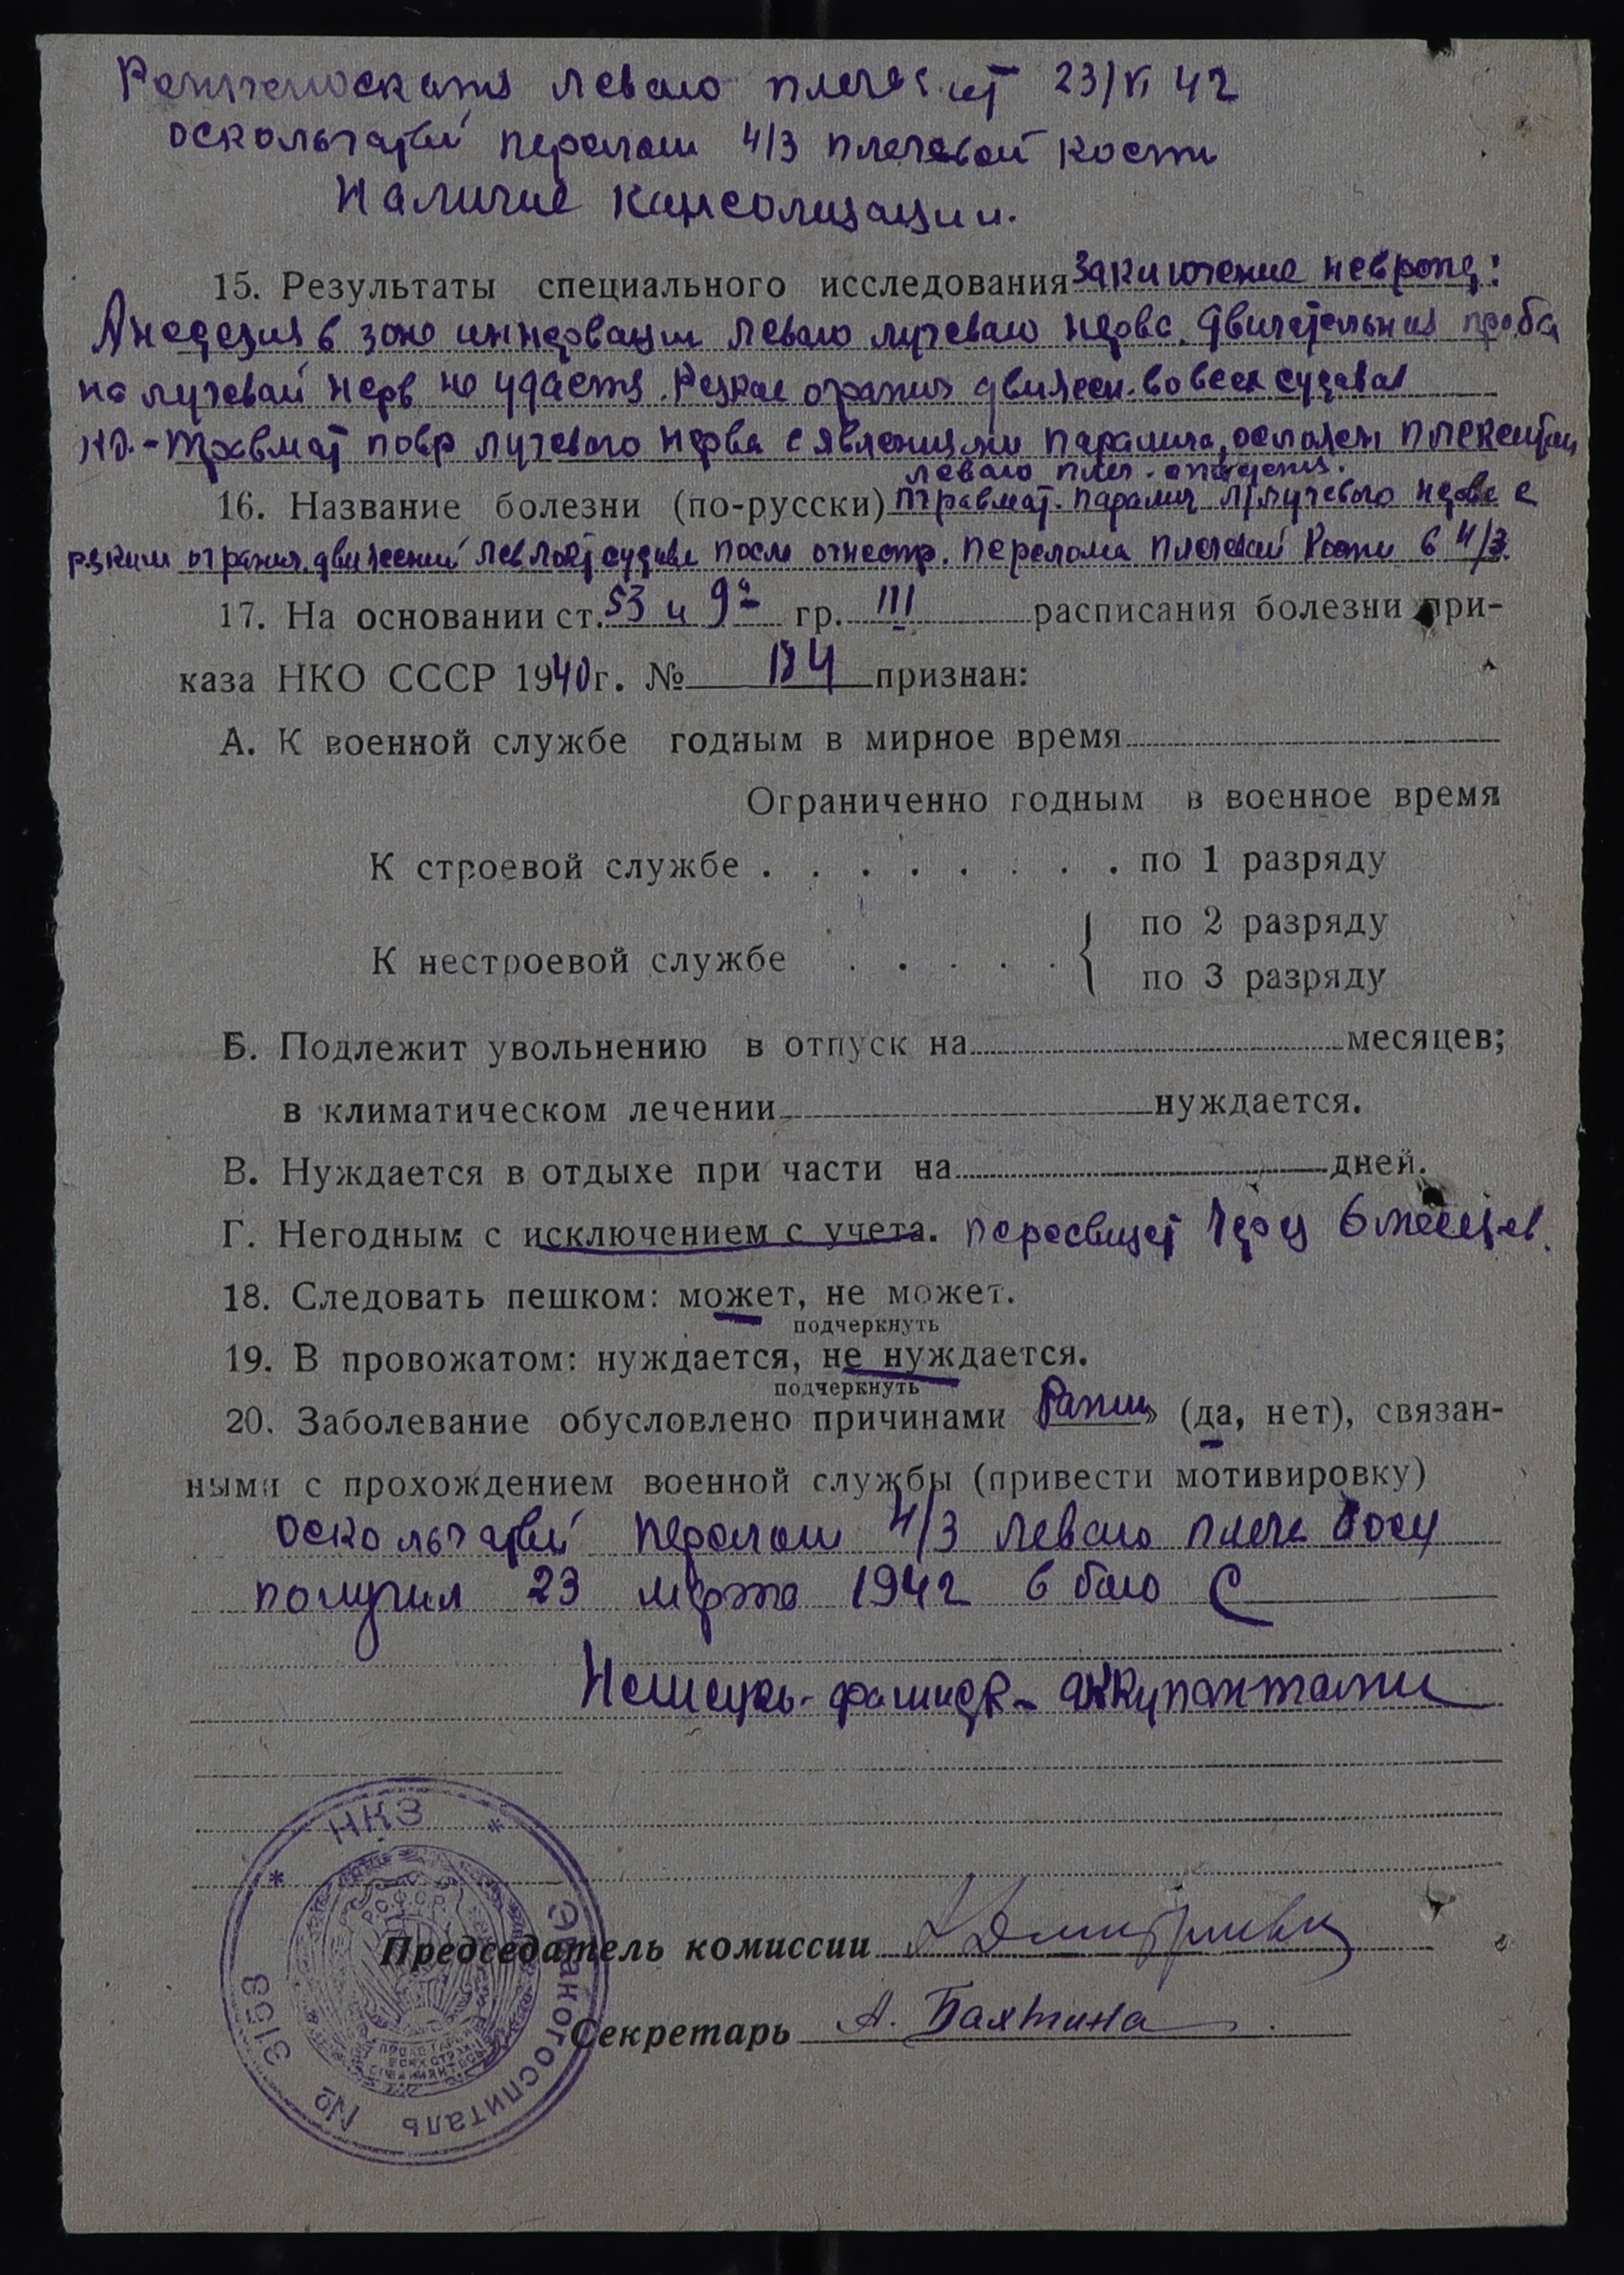 Рентгеноскопия левого плеча от 23/VI 42
оскольчатый перелом н/3 плечевой кости
Наличие консолидации.
15. Результаты специального исследования заключение невропа:
Анестезия в зоне иннервации левого лучевого нерва. Двигательная проба
на лучевой нерв не удается. Резкое огранич движен. во всех суставах
травмат повр лучевого нерва с явлениями паралича, осложен плекситом
левого плеч.
16. Название болезни (по-русски) травмат. паралич лучевого нерва с
резким огранич. движений лев. сустава после огнестр. перелома плечевой кости в н/3.
17. На основании ст. 53 и 9а гр. III расписания болезни при-
каза НКО СССР 1940 г. № 184 признан:
А. К военной службе годным в мирное время
Ограниченно годным в военное время
К строевой службе . . . . . . . . по 1 разряду
К нестроевой службе . . . . . { по 2 разряду
по 3 разряду
Б. Подлежит увольнению в отпуск на месяцев;
в климатическом лечении нуждается.
В. Нуждается в отдыхе при части на дней.
Г. Негодным с исключением с учета. пересвидет через 6 месяцев.
18. Следовать пешком: может, не может.
подчеркнуть
19. В провожатом: нуждается, не нуждается.
подчеркнуть
20. Заболевание обусловлено причинами (да, нет), связан-
ными с прохождением военной службы (привести мотивировку)
оскольчатый перелом н/3 левого плеча
получил 23 марта 1942 в бою с
Немецко-фашист- оккупантами
Председатель комиссии
Секретарь А. Бахтина
* НКЗ * Эвакогоспиталь № 3153
Р.С.Ф.С.Р.